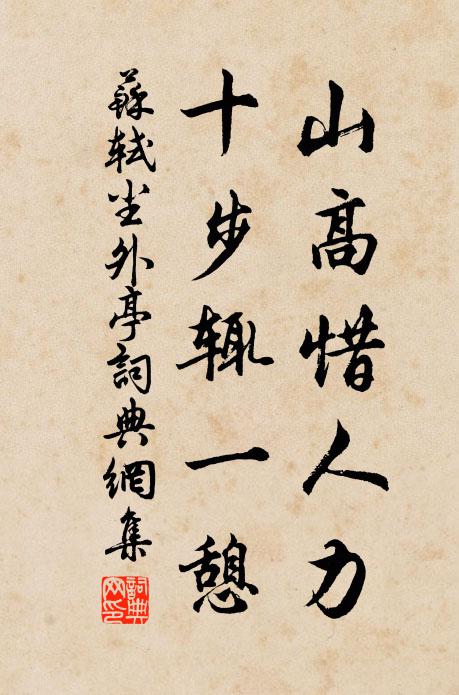 山高惜人力
十步輒一憩
蘇軾塵外亭詞典網集
詞典网印